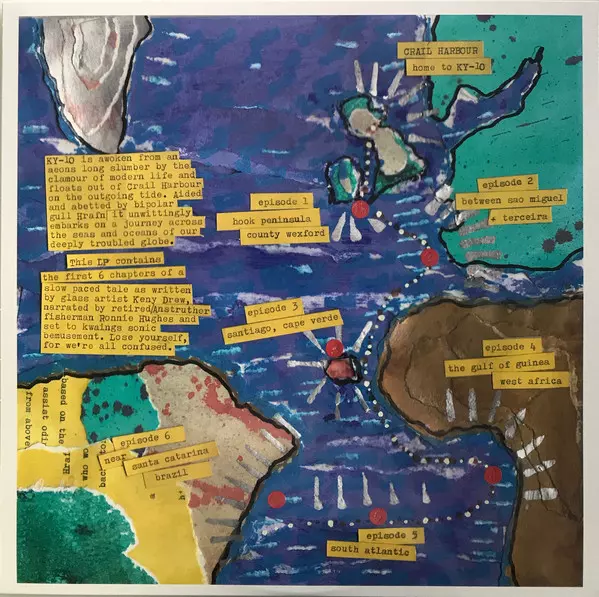 CRAIL HARBOUR
home to KY-10
KY-10 is awoken from an
aeons long slumber by the
clamour of modern life and
floats out of Crail Harbour
on the outgoing tide. Aided
and abetted by bipolar
gull Hrafn it unwittingly
embarks on a journey across
the seas and oceans of our
deeply troubled globe.
This LP contains
the first 6 chapters of a
slow paced tale as written
by glass artist Keny Drew,
narrated by retired Anstruther
fisherman Ronnie Hughes and
set to kwaings sonic
bemusement. Lose yourself,
for we're all confused.
episode 1
hook peninsula
county wexford
episode 2
between sao miguel
+ terceira
episode 3
santiago, cape verde
episode 4
the gulf of guinea
west africa
episode 5
south atlantic
episode 6
near
santa catarina
brazil
based on the
assist odi
from above